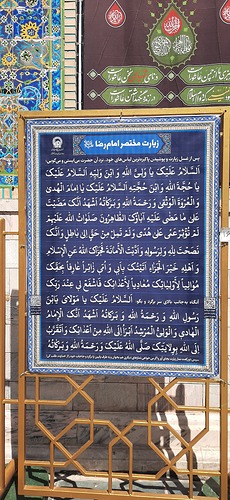 زیارت مختصر امام رضا
پس از غسل زیارت و پوشیدن پاکیزه‌ترین لباس‌های خود، نزد آن حضرت می‌ایستی و می‌گویی:
اَلسَّلامُ عَلَیْکَ یا وَلِیَّ اللهِ وَ ابْنَ وَلِیِّهِ اَلسَّلامُ عَلَیْکَ
یا حُجَّةَ اللهِ وَ ابْنَ حُجَّتِهِ اَلسَّلامُ عَلَیْکَ یا اِمامَ الْهُدی
وَ الْعُرْوَةُ الْوُثْقی وَ رَحْمَةُ اللهِ وَ بَرَکاتُهُ اَشْهَدُ اَنَّکَ مَضَیْتَ
عَلی ما مَضی عَلَیْهِ آباؤُکَ الطّاهِرُونَ صَلَواتُ اللهِ عَلَیْهِمْ
لَمْ تُؤْثِرْ عَمیً عَلی هُدیً وَ لَمْ تَمِلْ مِنْ حَقٍّ اِلی باطِلٍ وَ اَنَّکَ
نَصَحْتَ لِلّهِ وَ لِرَسُولِهِ وَ اَدَّیْتَ الْاَمانَةَ فَجَزاکَ اللهُ عَنِ الْاِسْلامِ
وَ اَهْلِهِ خَیْرَ الْجَزاءِ اَتَیْتُکَ بِاَبی وَ اُمّی زائِراً عارِفاً بِحَقِّکَ
مُوالِیاً لِاَوْلِیائِکَ مُعادِیاً لِاَعْدائِکَ فَاشْفَعْ لی عِنْدَ رَبِّکَ
آنگاه به‌جانب بالای سر برگرد و بگو: اَلسَّلامُ عَلَیْکَ یا مَوْلایَ یَابْنَ
رَسُولِ اللهِ وَ رَحْمَةُ اللهِ وَ بَرَکاتُهُ اَشْهَدُ اَنَّکَ الْاِمامُ
الْهادی وَ الْوَلِیُّ الْمُرْشِدُ اَبْرَأُ اِلَی اللهِ مِنْ اَعْدائِکَ وَ اَتَقَرَّبُ
اِلَی اللهِ بِوِلایَتِکَ صَلَّی اللهُ عَلَیْکَ وَ رَحْمَةُ اللهِ وَ بَرَکاتُهُ